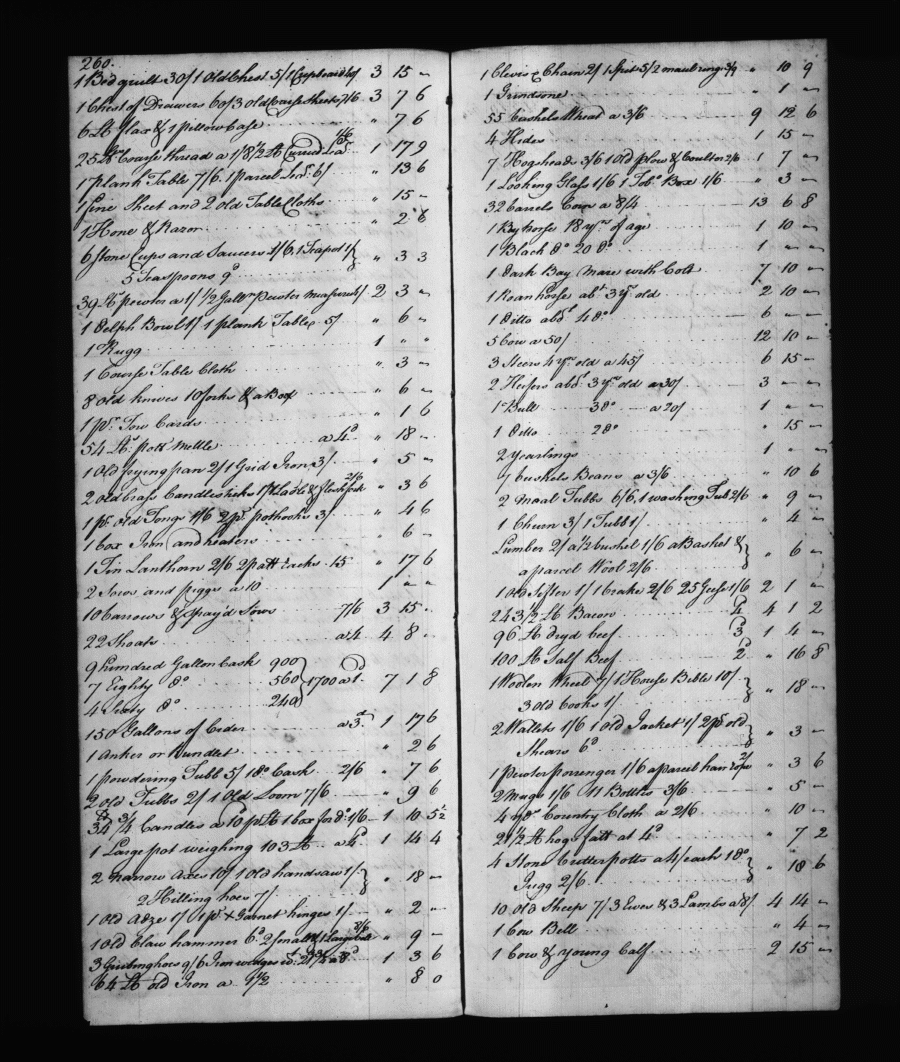 260.
1 Bed quilt 30/ 1 Old Chest 5/ 1 Cupboard 40/ 3 15 ~
1 Chest of Drawers 60/ 3 old Coarse Sheets 7/6 3 7 6
6 lb flax & 1 pillow Case " 7 6
25 lb Coarse thread a 1/ 8½ lb Curried Lear. 4/6 1 17 9
1 plank Table 7/6. 1 parcel Lear. 6/ " 13 6
1 fine Sheet and 2 old Table Cloths " 15 ~
1 Hone & Razor " 2 6
6 Stone Cups and Saucers 2/6. 1 Teapot 1/ } " 3 3
5 Teaspoons 9d
39 lbs pewter a 1/ ½ Galln pewter measure 4/ 2 3 ~
1 Delph Bowl 1/ 1 plank Table 5/ " 6 ~
1 Rugg 1 " "
1 Course Table Cloth " 3 ~
8 old knives 10 forks & a Box " 6 ~
1 pr. Tow Cards " 1 6
54 lbs pott mettle a 4d " 18 ~
1 Old frying pan 2/ 1 Grid Iron 3/ " 5 ~
2 old brass Candlesticks 1/ 1 Ladle & flesh fork 2/6 " 3 6
1 pr. old Tongs 1/6 2 pr. pothooks 3/ " 4 6
1 box Iron and heaters " 6 ~
1 Tin Lanthorn 2/6 2 patt Racks 15 " 17 6
2 Sows and piggs a 10 1 " ~
10 barrows & Spay'd Sows 7/6 3 15 ~
22 Shoats a 4 4 8 ~
9 hundred Gallon Cask 900
7 Eighty do 560 } 1700 a 1d 7 1 8
4 Sixty do 240
150 Gallons of Cider a 3d 1 17 6
1 Anker or Rundlet " 2 6
1 powdering Tubb 5/ 1 do Cask 2/6 " 7 6
2 old Tubbs 2/ 1 Old Loom 7/6 " 9 6
34 ¾ lb Candles a 10 p lb 1 box for do 1/6 1 10 5½
1 Large pot weighing 103 lb a 4d 1 14 4
2 narrow Axes 10/ 1 Old handsaw 1/ } " 18 ~
2 Hilling hoes 7/
1 Old Adze 1/ 1 pr. X Garnet hinges 1/ " 2 ~
1 Old Claw hammer 6d 2 small & 1 Large 2/6 " 9 ~
3 Grubing hoes 9/6 Iron wedges wt. 21¾ a 8d 1 3 6
64 lb old Iron a 1½ " 8 0
1 Clevis & Chain 2/ 1 Spit 5/ 2 maul rings 3/9 " 10 9
1 Grindstone " 1 ~
55 bushels Wheat a 3/6 9 12 6
4 Hides 1 15 ~
7 Hogsheads 3/6 1 Old plow & Coulter 2/6 1 7 ~
1 Looking Glass 1/6 1 Tobo. Box 1/6 " 3 ~
32 barrels Corn a 8/4 13 6 8
1 Bay horse 18 yrs. of age 1 10 ~
1 Black do 20 do 1 ~ ~
1 Dark Bay Mare with Colt 7 10 ~
1 Roan horse abt 3 yr. old 2 10 ~
1 Ditto abt. 4 do 6 ~ ~
5 Cow a 50/ 12 10 ~
3 Steers 4 yrs. old a 45/ 6 15 ~
2 Heifers abt. 3 yrs. old a 30/ 3 ~ ~
1 Bull 3 do a 20/ 1 ~ ~
1 Ditto 2 do " 15 ~
2 yearlings 1 " ~
3 bushels Beans a 3/6 " 10 6
2 meal Tubbs 6/6. 1 washing Tub 2/6 " 9 ~
1 Churn 3/ 1 Tubb 1/ " 4 ~
Lumber 2/ a ½ bushel 1/6 a Basket & } " 6 ~
a parcel Wool 2/6
1 old Sifter 1/ 1 brake 2/6 25 Geese 1/6 2 1 ~
243½ lb Bacon 4d 4 1 2
96 lb dryd beef 3d 1 4 ~
100 lb Salt Beef 2d " 16 8
1 Woolen Wheel 7/ 1 House Bible 10/ } " 18 ~
3 old books 1/
2 Wallets 1/6 1 old Jacket 1/ 2 pr. old } " 3 ~
Shears 6d
1 pewter porrenger 1/6 a parcel hair rope 2/ " 3 6
2 Mugs 1/6 11 Bottles 3/6 " 5 ~
4 yds Country Cloth a 2/6 " 10 ~
21½ lb hogs fatt at 4d " 7 2
4 Stone butter potts a 4/ each 1 do } " 18 6
Jugg 2/6
10 Old Sheep 7/ 3 Ewes & 3 Lambs a 8/ 4 14 ~
1 Cow Bell " 4 ~
1 Cow & young Calf 2 15 ~